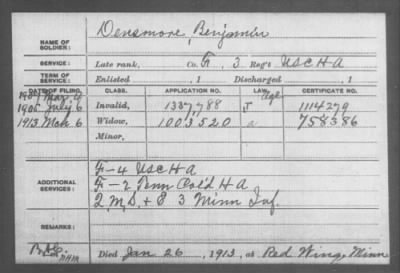 NAME OF SOLDIER: Densmore, Benjamin
SERVICE: Late rank, Co. F, 3 Reg't U S C H A
TERM OF SERVICE: Enlisted , 1 Discharged , 1
DATE OF FILING. CLASS. APPLICATION NO. LAW. CERTIFICATE NO.
1905 July 6 Invalid, 1337788 J Age 1114279
1913 Mch 6 Widow, 1003520 a 758386
Minor,
ADDITIONAL SERVICES: F-4 U S C H A
F-2 Tenn Col'd H A
Q. M. S. + E 3 Minn Inf.
REMARKS:
Died Jan 26, 1913, at Red Wing, Minn